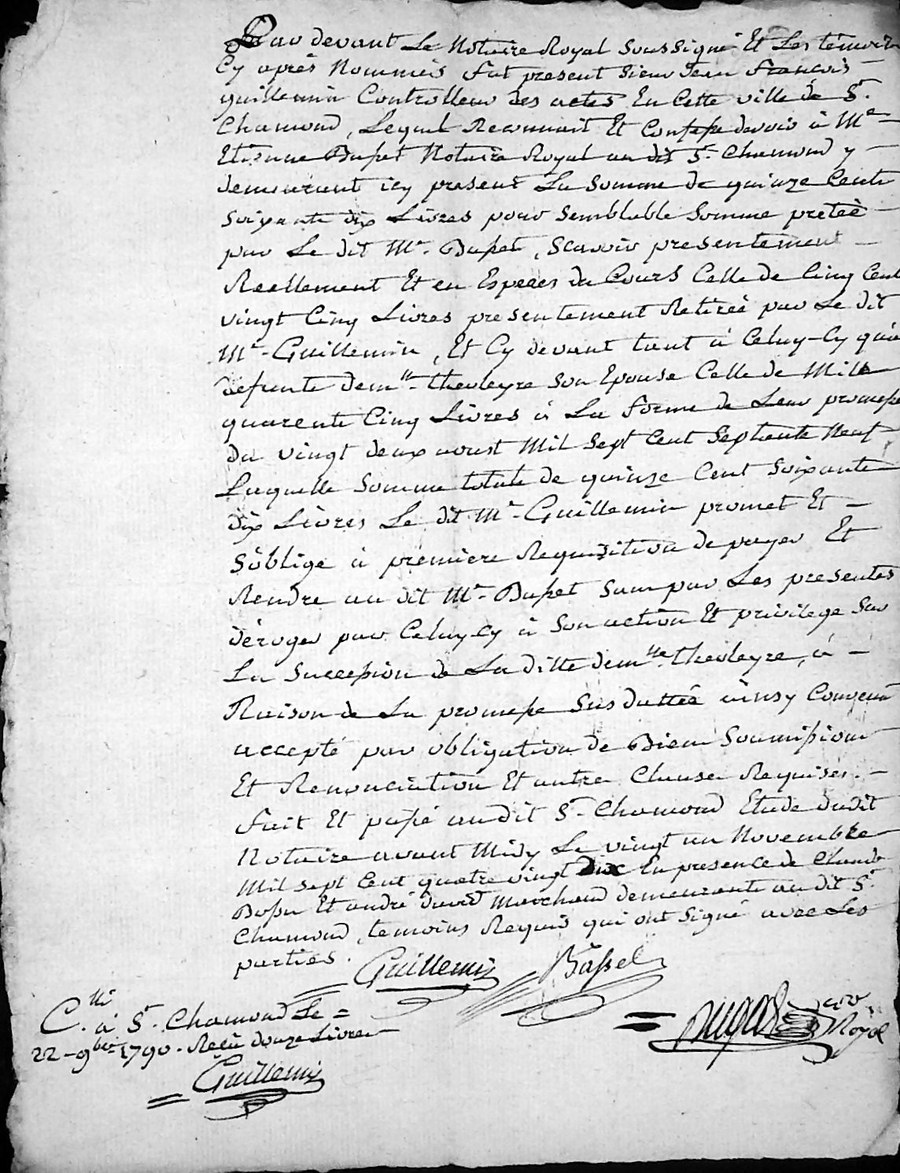 Par devant Le Notaire Royal Soussigné Et Les témoins
Cy après Nommés fut present Sieur Jean François
guillemin Controlleur des actes En Cette ville de St.
Chamond, Lequel Reconnait Et Confesse devoir à Me
Etienne Basset Notaire Royal au dit St. Chamond y
demeurant icy present La Somme de quinze Cent
Soixante dix Livres pour Semblable Somme pretée
par Le dit Mr. Basset, Scavoir presentement
Reellement Et en Especes du Cours Celle de Cinq Cent
vingt Cinq Livres presentement Retirée par Le dit
Mr. Guillemin, Et Cy devant tant à Celuy-Cy qu'a
defunte demlle. theoleyre Son Epouse Celle de Mille
quarente Cinq Livres à La forme de Leur promesse
du vingt deux aoust Mil Sept Cent Septente Neuf,
Laquelle Somme totale de quinze Cent Soixante
dix Livres Le dit Mr. Guillemin promet Et
S'oblige à premiere Requisition de payer Et
Rendre au dit Mr. Basset Sans par Les presentes
déroger par Celuy-Cy à Son action Et privilege Sur
La Succession de La ditte demlle. theoleyre, à
Raison de La promesse Susdattée ainsy Convenu
accepté par obligation de Bien Soumissions
Et Renonciation Et autre Clause Requises.
Fait Et passé au dit St. Chamond Etude dudit
Notaire avant Midy Le vingt un Novembre
Mil Sept Cent quatre vingt dix En presence de Claude
Et andré David Marchand demeurants au dit St.
Chamond, temoins Requis qui ont Signé avec Les
parties.
Guillemin Basset
Royal
C.lé à St. Chamond Le
22 - 9bre 1790. Reçu douze Livres
Guillemin